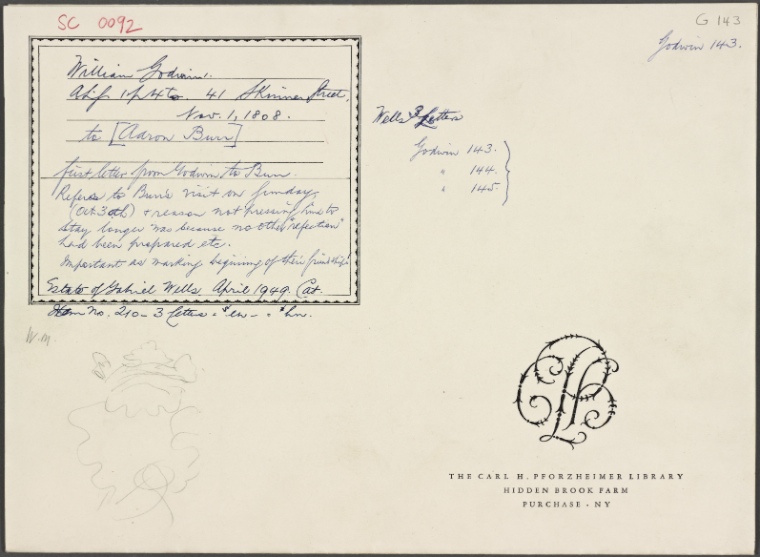 SC 0092
G 143
Godwin 143.
William Godwin.
ALS 1p 4to. 41 Skinner Street,
Nov. 1, 1808.
to [Aaron Burr]
first letter from Godwin to Burr.
Refers to Burr's visit on Sunday,
(Oct 30th) & reason not pressing him to
stay longer was because no other "refection"
had been prepared etc.
Important as marking beginning of their friendship
Estate of Gabriel Wells. April 1949. Cat.
Item no. 210 - 3 letters
Wells 3 Letters
Godwin 143.
" 144.
" 145.
W.M.
THE CARL H. PFORZHEIMER LIBRARY
HIDDEN BROOK FARM
PURCHASE · NY